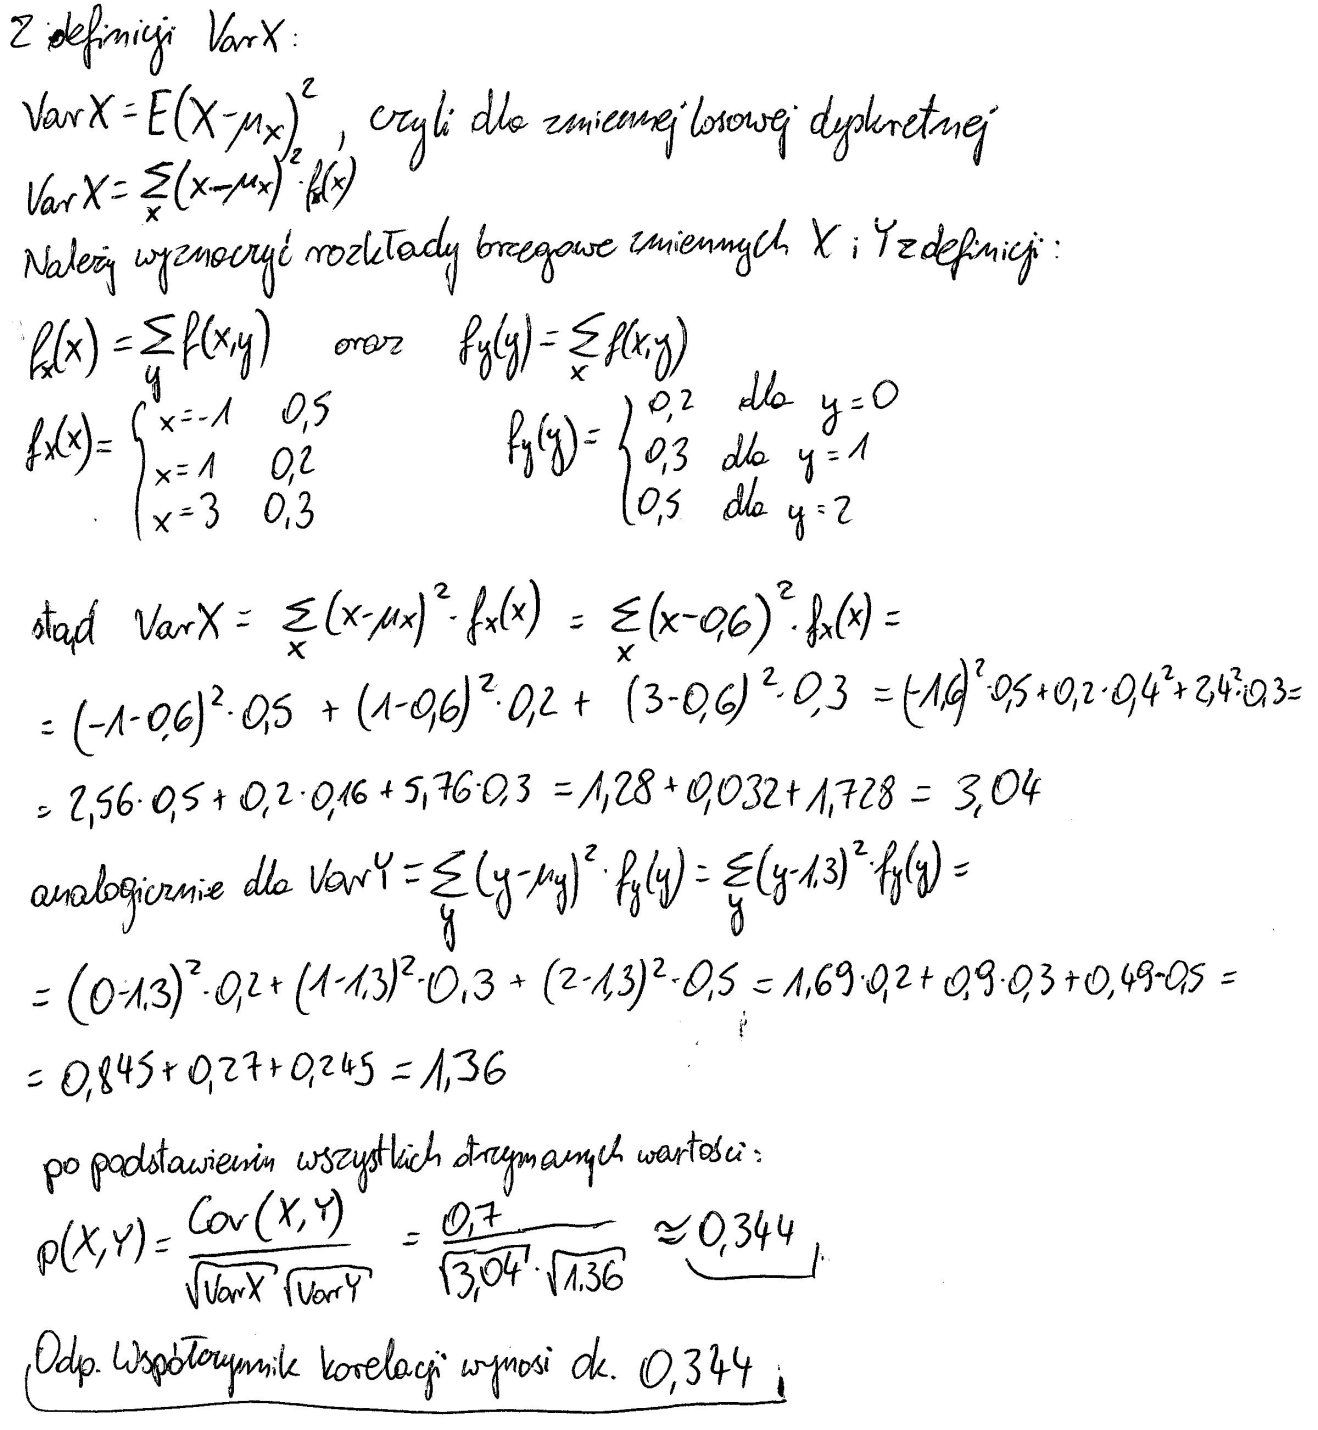 Z definicji VarX:
VarX = E(X-μx)², czyli dla zmiennej losowej dyskretnej
VarX = Σx (x-μx)² · fx(x)
Należy wyznaczyć rozkłady brzegowe zmiennych X i Y z definicji:
fx(x) = Σy f(x,y) oraz fy(y) = Σx f(x,y)
fx(x) = { x=-1 0,5 fy(y) = { 0,2 dla y=0
x=1 0,2 0,3 dla y=1
x=3 0,3 0,5 dla y=2
stąd VarX = Σx (x-μx)² · fx(x) = Σx (x-0,6)² · fx(x) =
= (-1-0,6)² · 0,5 + (1-0,6)² · 0,2 + (3-0,6)² · 0,3 = (-1,6)² · 0,5 + 0,2 · 0,4² + 2,4² · 0,3 =
= 2,56 · 0,5 + 0,2 · 0,16 + 5,76 · 0,3 = 1,28 + 0,032 + 1,728 = 3,04
analogicznie dla VarY = Σy (y-μy)² · fy(y) = Σy (y-1,3)² · fy(y) =
= (0-1,3)² · 0,2 + (1-1,3)² · 0,3 + (2-1,3)² · 0,5 = 1,69 · 0,2 + 0,9 · 0,3 + 0,49 · 0,5 =
= 0,845 + 0,27 + 0,245 = 1,36
po podstawieniu wszystkich otrzymanych wartości:
ρ(X,Y) = Cov(X,Y) / √VarX √VarY = 0,7 / √3,04 · √1.36 ≈ 0,344
Odp. Współczynnik korelacji wynosi ok. 0,344